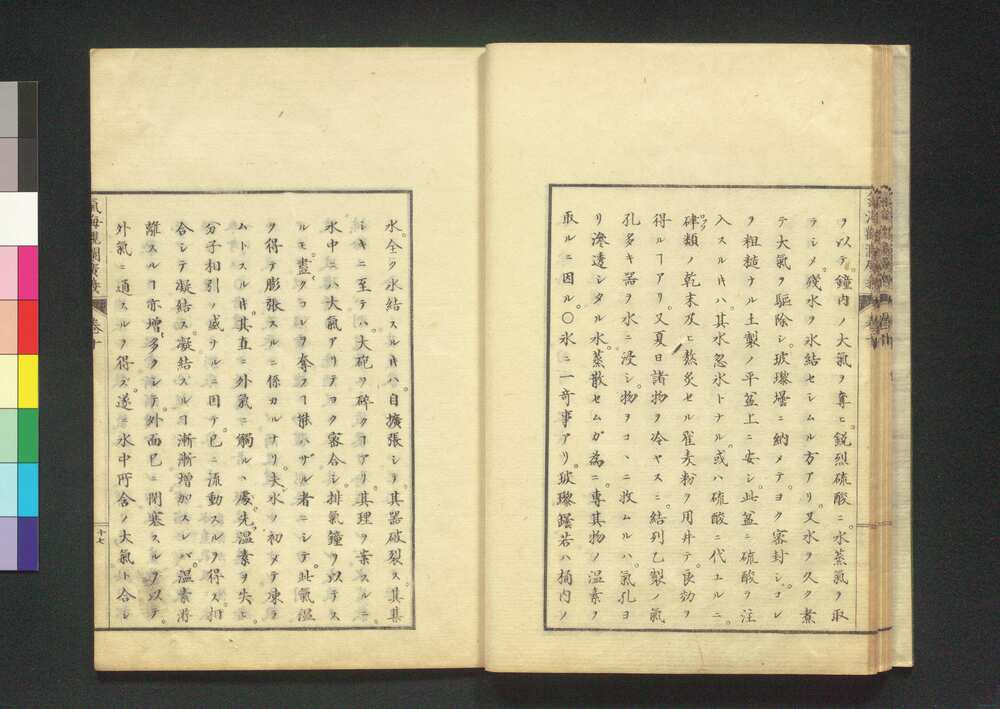 ヲ以テ鐘内ノ大氣ヲ奪ヒ。鋭烈硫酸ニ。水蒸氣ヲ取
ラシメ。殘水ヲ氷結セシムル方アリ。又水ヲ久ク煮
テ大氣ヲ驅除シ。玻瓈壜ニ納メテ。ヨク密封シ。コレ
ヲ粗糙ナル土製ノ平盆上ニ安シ。此盆ニ硫酸ヲ注
入スルキハ。其水忽氷トナル。或ハ硫酸ニ代エルニ。
碑類ノ乾末及ヒ熬炙セル雀麦粉ヲ用井テ。良効ヲ
得ルヿアリ。又夏日諸物ヲ冷ヤスニ。結列乙製ノ氣
孔多キ器ヲ水ニ浸シ。物ヲコヽニ收ムルハ。氣孔ヨ
リ滲透シタル水。蒸散セムガ為ニ。專其物ノ温素ヲ
取ルニ因ル。〇氷ニ一竒事アリ。玻瓈罎若ハ桶内ノ
水。全ク氷結スルキハ。自擴張シテ。其器破裂ス。其甚
シキニ至テハ。大砲ヲ碎クヿアリ。其理ヲ案スルニ。
氷中ニハ大氣アリテヨク審合シ。排氣鐘ヲ以テス
ルモ。盡クコレヲ奪フヿ能ハザル者ニシテ。此氣温
ヲ得テ膨張スルニ係カルナリ。夫水ノ初メテ凍ラ
ムトスルキ。其直ニ外氣ニ觸ルヽ處。先温素ヲ失ヒ。
分子相引ノ威サルニ因テ。已ニ流動スルヲ得ス。相
合シテ凝結ス。凝結スルヿ漸漸増加スレバ。温素游
離スルヿ亦増多クシテ。外面已ニ閉塞スルヲ以テ。
外氣ニ通スルヲ得ズ。遂ニ氷中所含ノ大氣ト合シ
氣海觀瀾廣義
卷十
十七